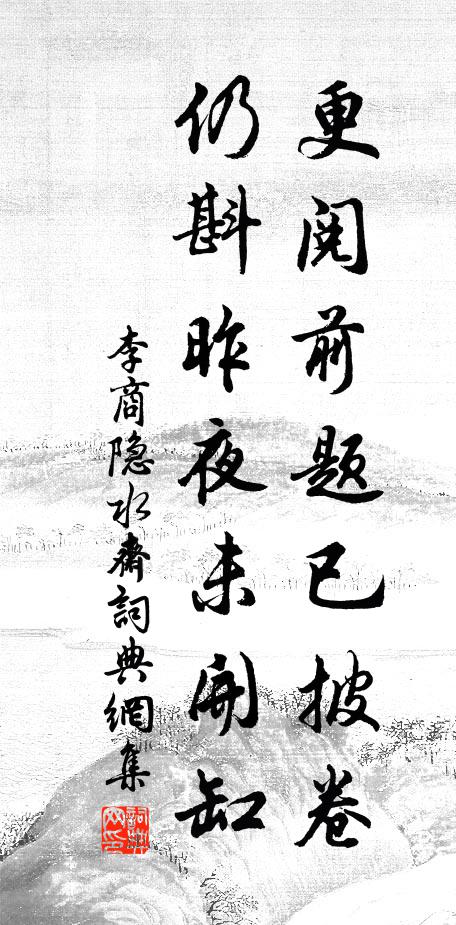 更阅前题已披卷
仍斟昨夜未开缸
李商隐水斋詞典網集